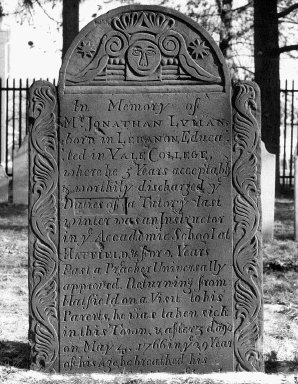 In Memory of
Mr. JONATHAN LYMAN,
born in LEBANON, Educa-
ted in YALE COLLEGE,
where he 3 Years acceptably
& worthily discharged ye
Duties of a Tutor, ye last
winter was an Instructor
in ye Accademic School at
HATFIELD, & for 2 Years
Past a Preacher Universally
approved. Returning from
Hatfield on a Visit to his
Parents, he was taken sick
in this Town, & after 3 days
on May 4, 1766 in ye 29 Year
of his Age he breathed his